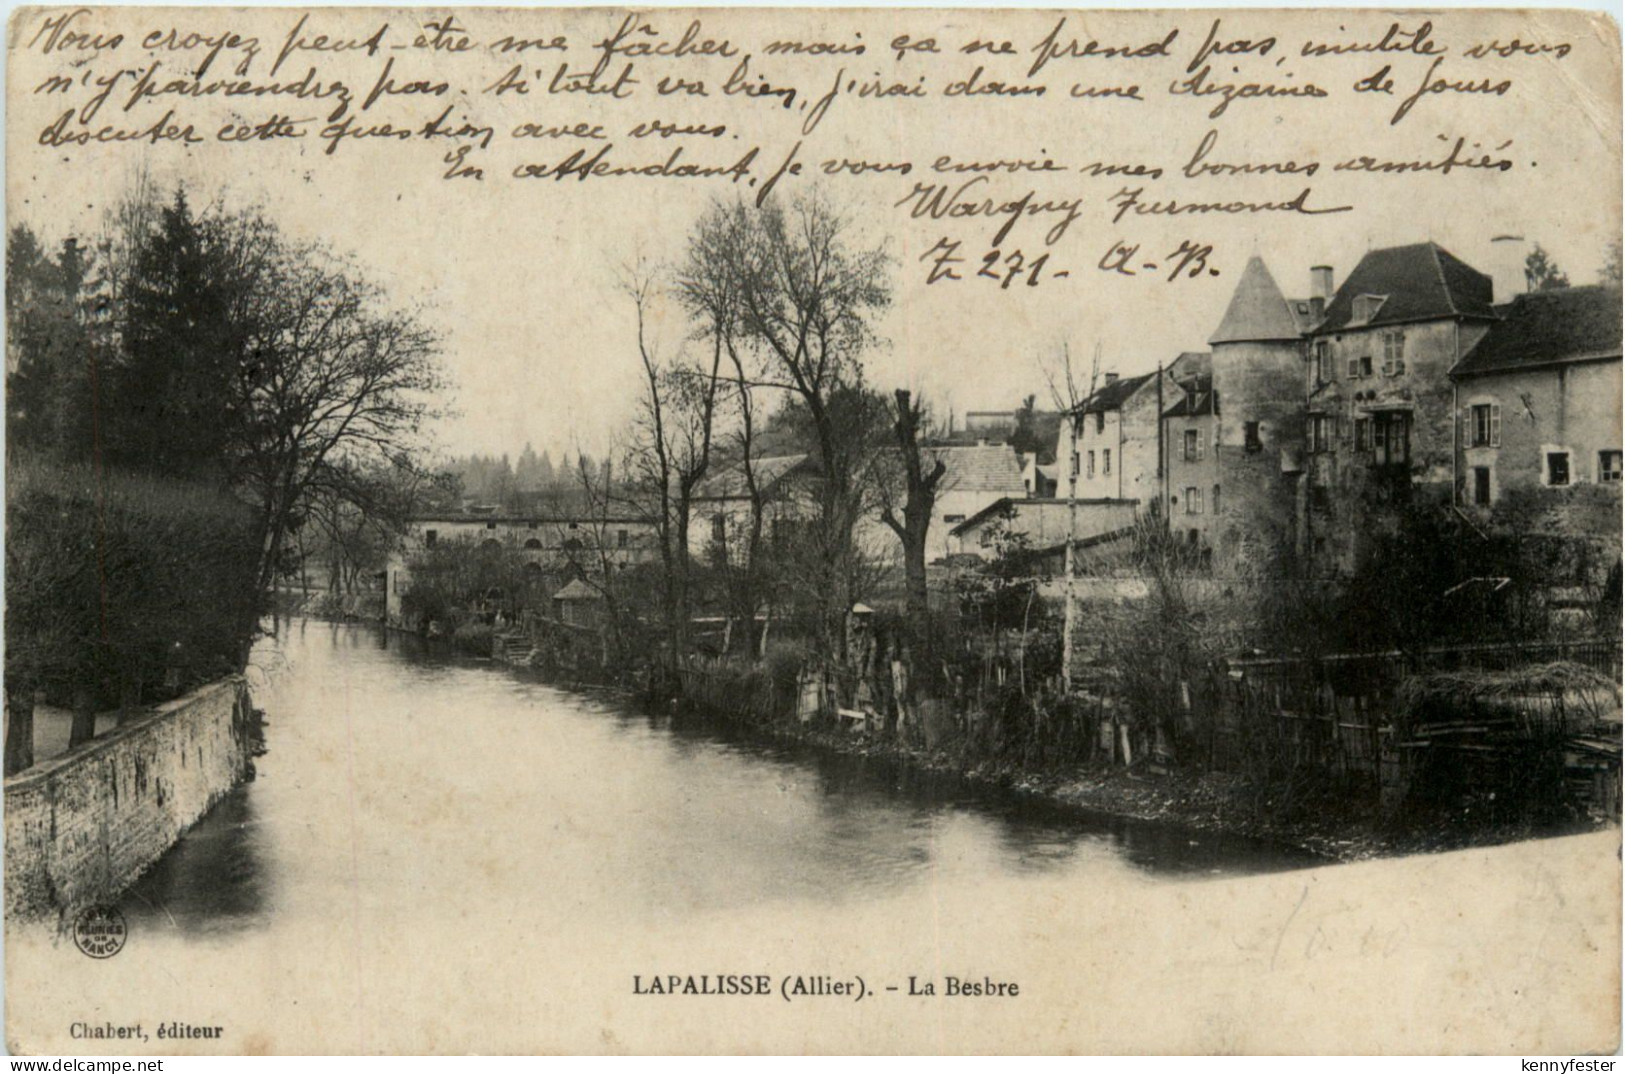 Vous croyez peut-être me fâcher, mais ça ne prend pas, inutile, vous
n'y parviendrez pas. Si tout va bien, j'irai dans une dizaine de jours
discuter cette question avec vous.
En attendant, je vous envoie mes bonnes amitiés.
Wargny Furmond
271 - A - B.
RÉUNIES
DE
NANCY
LAPALISSE (Allier). - La Besbre
Chabert, éditeur
www.delcampe.net
kennyfester